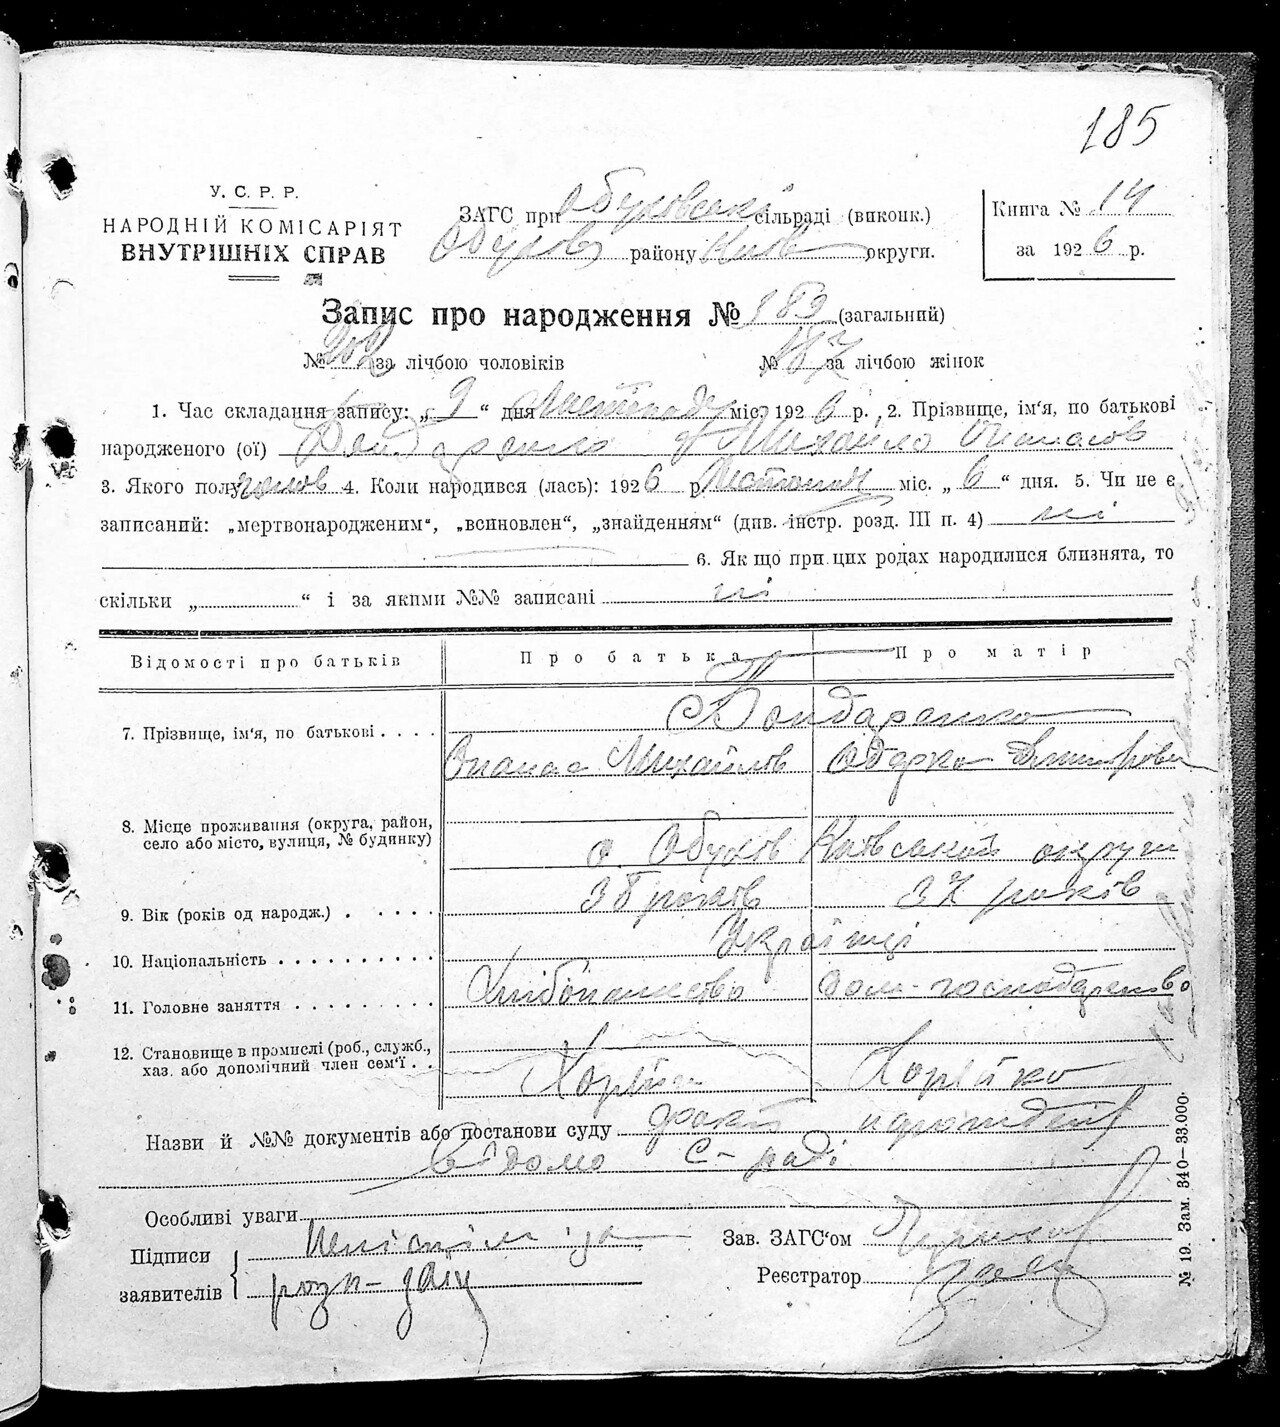 185
У. С. Р. Р.
НАРОДНІЙ КОМІСАРІЯТ
ВНУТРІШНІХ СПРАВ
ЗАГС при Обухівські сільраді (виконк.)
Обухов району Київ округи.
Книга № 14
за 1926 р.
Запис про народження № 389 (загальний)
№ 202 за лічбою чоловіків № 187 за лічбою жінок
1. Час складання запису: „9“ дня Листопаду міс. 1926 р. 2. Прізвище, ім'я, по батькові
народженого (ої) Бондаренко Михайло Опанасов
3. Якого полу чолов 4. Коли народився (лась): 1926 р. Листопаду міс. „6“ дня. 5. Чи це є
записаний: „мертвонародженим“, „всиновлен“, „знайденням“ (див. інстр. розд. III п. 4) ні
6. Як що при цих родах народилися близнята, то
скільки „ “ і за якими №№ записані ні
Відомості про батьків Про батька Про матір
7. Прізвище, ім'я, по батькові . . . . Бондаренко
Опанас Михайлов Одарка Дмитрови
8. Місце проживання (округа, район,
село або місто, вулиця, № будинку) с. Обухів Київської округи
9. Вік (років од народж.) . . . . . 35 років 37 років
10. Національність . . . . . . . . . . Українці
11. Головне заняття . . . . . . . . Хлібопашество Дом-господарство
12. Становище в промислі (роб., служб.,
хаз. або допомічний член сем'ї . . Хозяїн Хозяйка
Назви й №№ документів або постанови суду
відомо С-раді
Особливі уваги
Підписи
заявителів
Неписьмен за
розп-
Зав. ЗАГС'ом
Реєстратор
№ 19. Зам. 340—33.000.